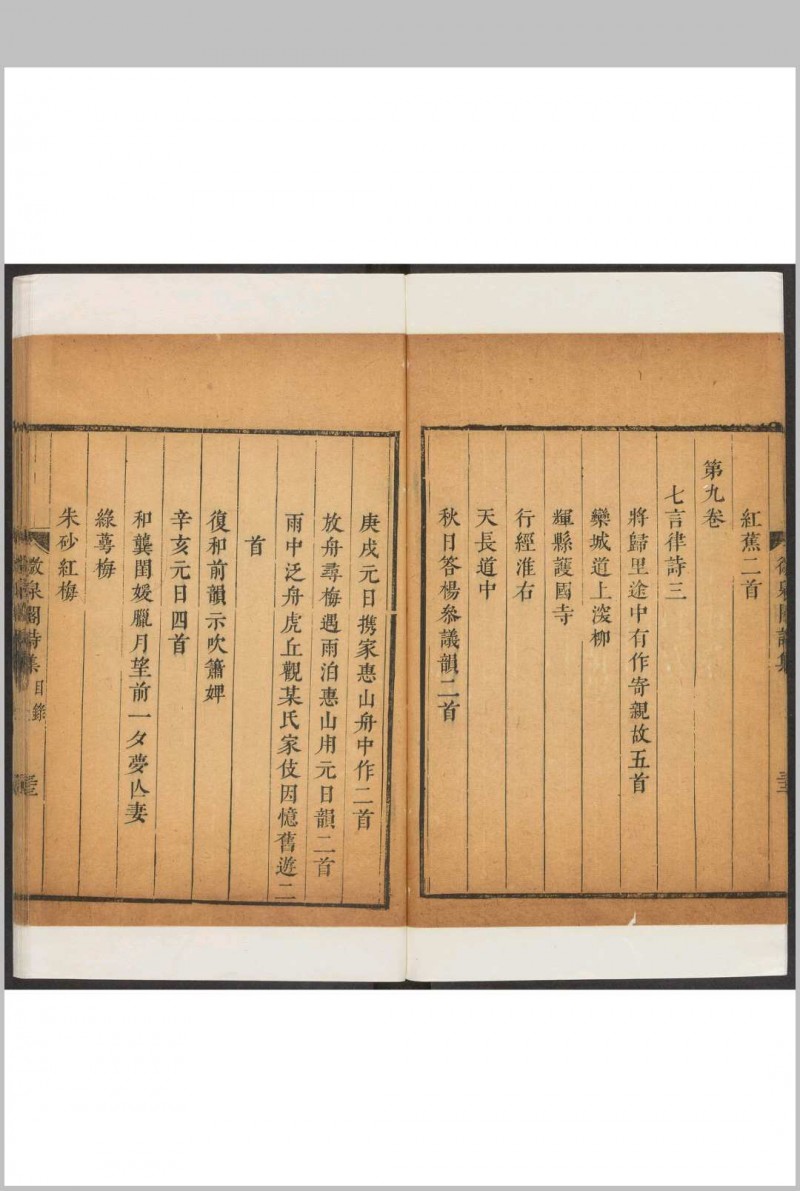 紅蕉二首
第九卷
七言律詩三
將歸里途中有作寄親故五首
欒城道上淩柳
輝縣護國寺
行經淮右
天長道中
秋日答楊叅議韻二首
庚戌元日携家惠山舟中作二首
放舟尋梅遇雨泊惠山用元日韻二首
雨中泛舟虎丘觀某氏家伎因憶舊遊二
首
復和前韻示吹簫婢
辛亥元日四首
和龔閨媛臘月望前一夕夢亾妻
綠萼梅
朱砂紅梅
泉閣詩集 目錄